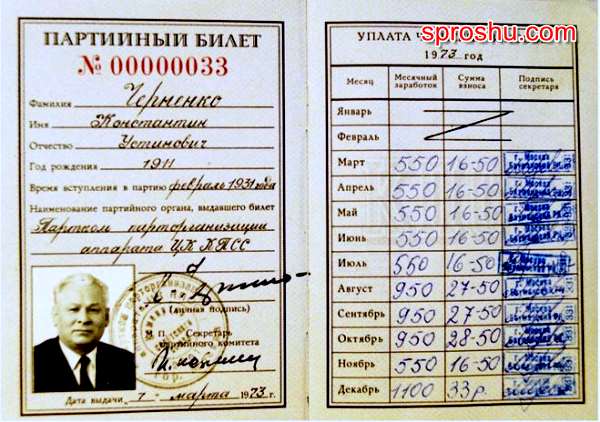 ПАРТИЙНЫЙ БИЛЕТ
№ 00000033
Фамилия Черненко
Имя Константин
Отчество Устинович
Год рождения 1911
Время вступления в партию февраль 1931 года
Наименование партийного органа, выдавшего билет
Партком парторганизации
аппарата ЦК КПСС
(личная подпись)
М. П. Секретарь
партийного комитета
Дата выдачи 7 марта 1973 г.
УПЛАТА Ч
sproshu.com
1973 год
Месяц Месячный заработок Сумма взноса Подпись секретаря
Январь
Февраль
Март 550 16-50
Апрель 550 16-50
Май 550 16-50
Июнь 550 16-50
Июль 550 16-50
Август 950 27-50
Сентябрь 950 27-50
Октябрь 950 28-50
Ноябрь 550 16-50
Декабрь 1100 33р.